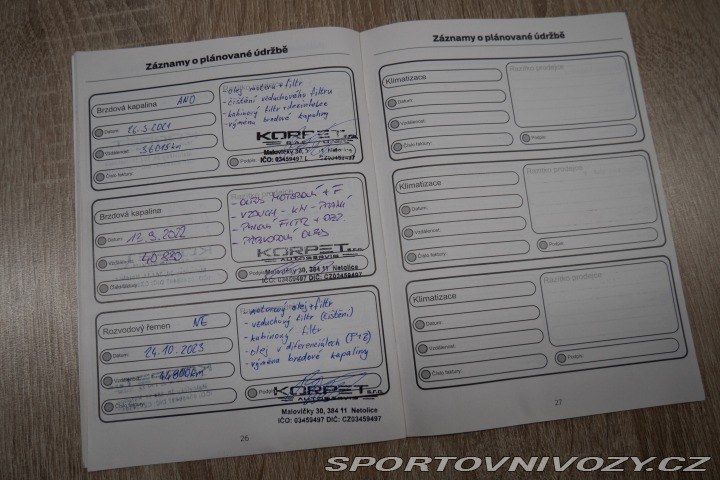 Záznamy o plánované údržbě
Brzdová kapalina ANO
Datum: 26.3.2021
Vzdálenost: 36015km
Číslo faktury:
- olej motoru + filtr
- čištění vzduchového filtru
- kabinový filtr + dezinfekce
- výměna brzdové kapaliny
KORPET s.r.o.
Malovičky 30, Netolice
IČO: 03459497
Podpis:
Brzdová kapalina
Datum: 12.9.2022
Vzdálenost: 40 820
Číslo faktury:
- OLEJ MOTOROVÝ + F
- PYLOVÝ FILTR + DEZ
KORPET s.r.o.
AUTOSERVIS
Malovičky 30, 384 11 Netolice
IČO: 03459497 DIČ: CZ03459497
Podpis:
Rozvodový řemen NE
Datum: 24.10.2023
Vzdálenost: 44890km
Číslo faktury:
- motorový olej + filtr
- vzduchový filtr (čištění)
- kabinový filtr
- olej v diferenciálech (P+Z)
- výměna brzdové kapaliny
Podpis:
KORPET s.r.o.
AUTOSERVIS
Malovičky 30, 384 11 Netolice
IČO: 03459497 DIČ: CZ03459497
26
Záznamy o plánované údržbě
Klimatizace
Razítko prodejce
Datum:
Vzdálenost:
Číslo faktury:
Podpis:
Klimatizace
Razítko prodejce
Datum:
Vzdálenost:
Číslo faktury:
Podpis:
Klimatizace
Razítko prodejce
Datum:
Vzdálenost:
Číslo faktury:
Podpis:
27
SPORTOVNIVOZY.CZ